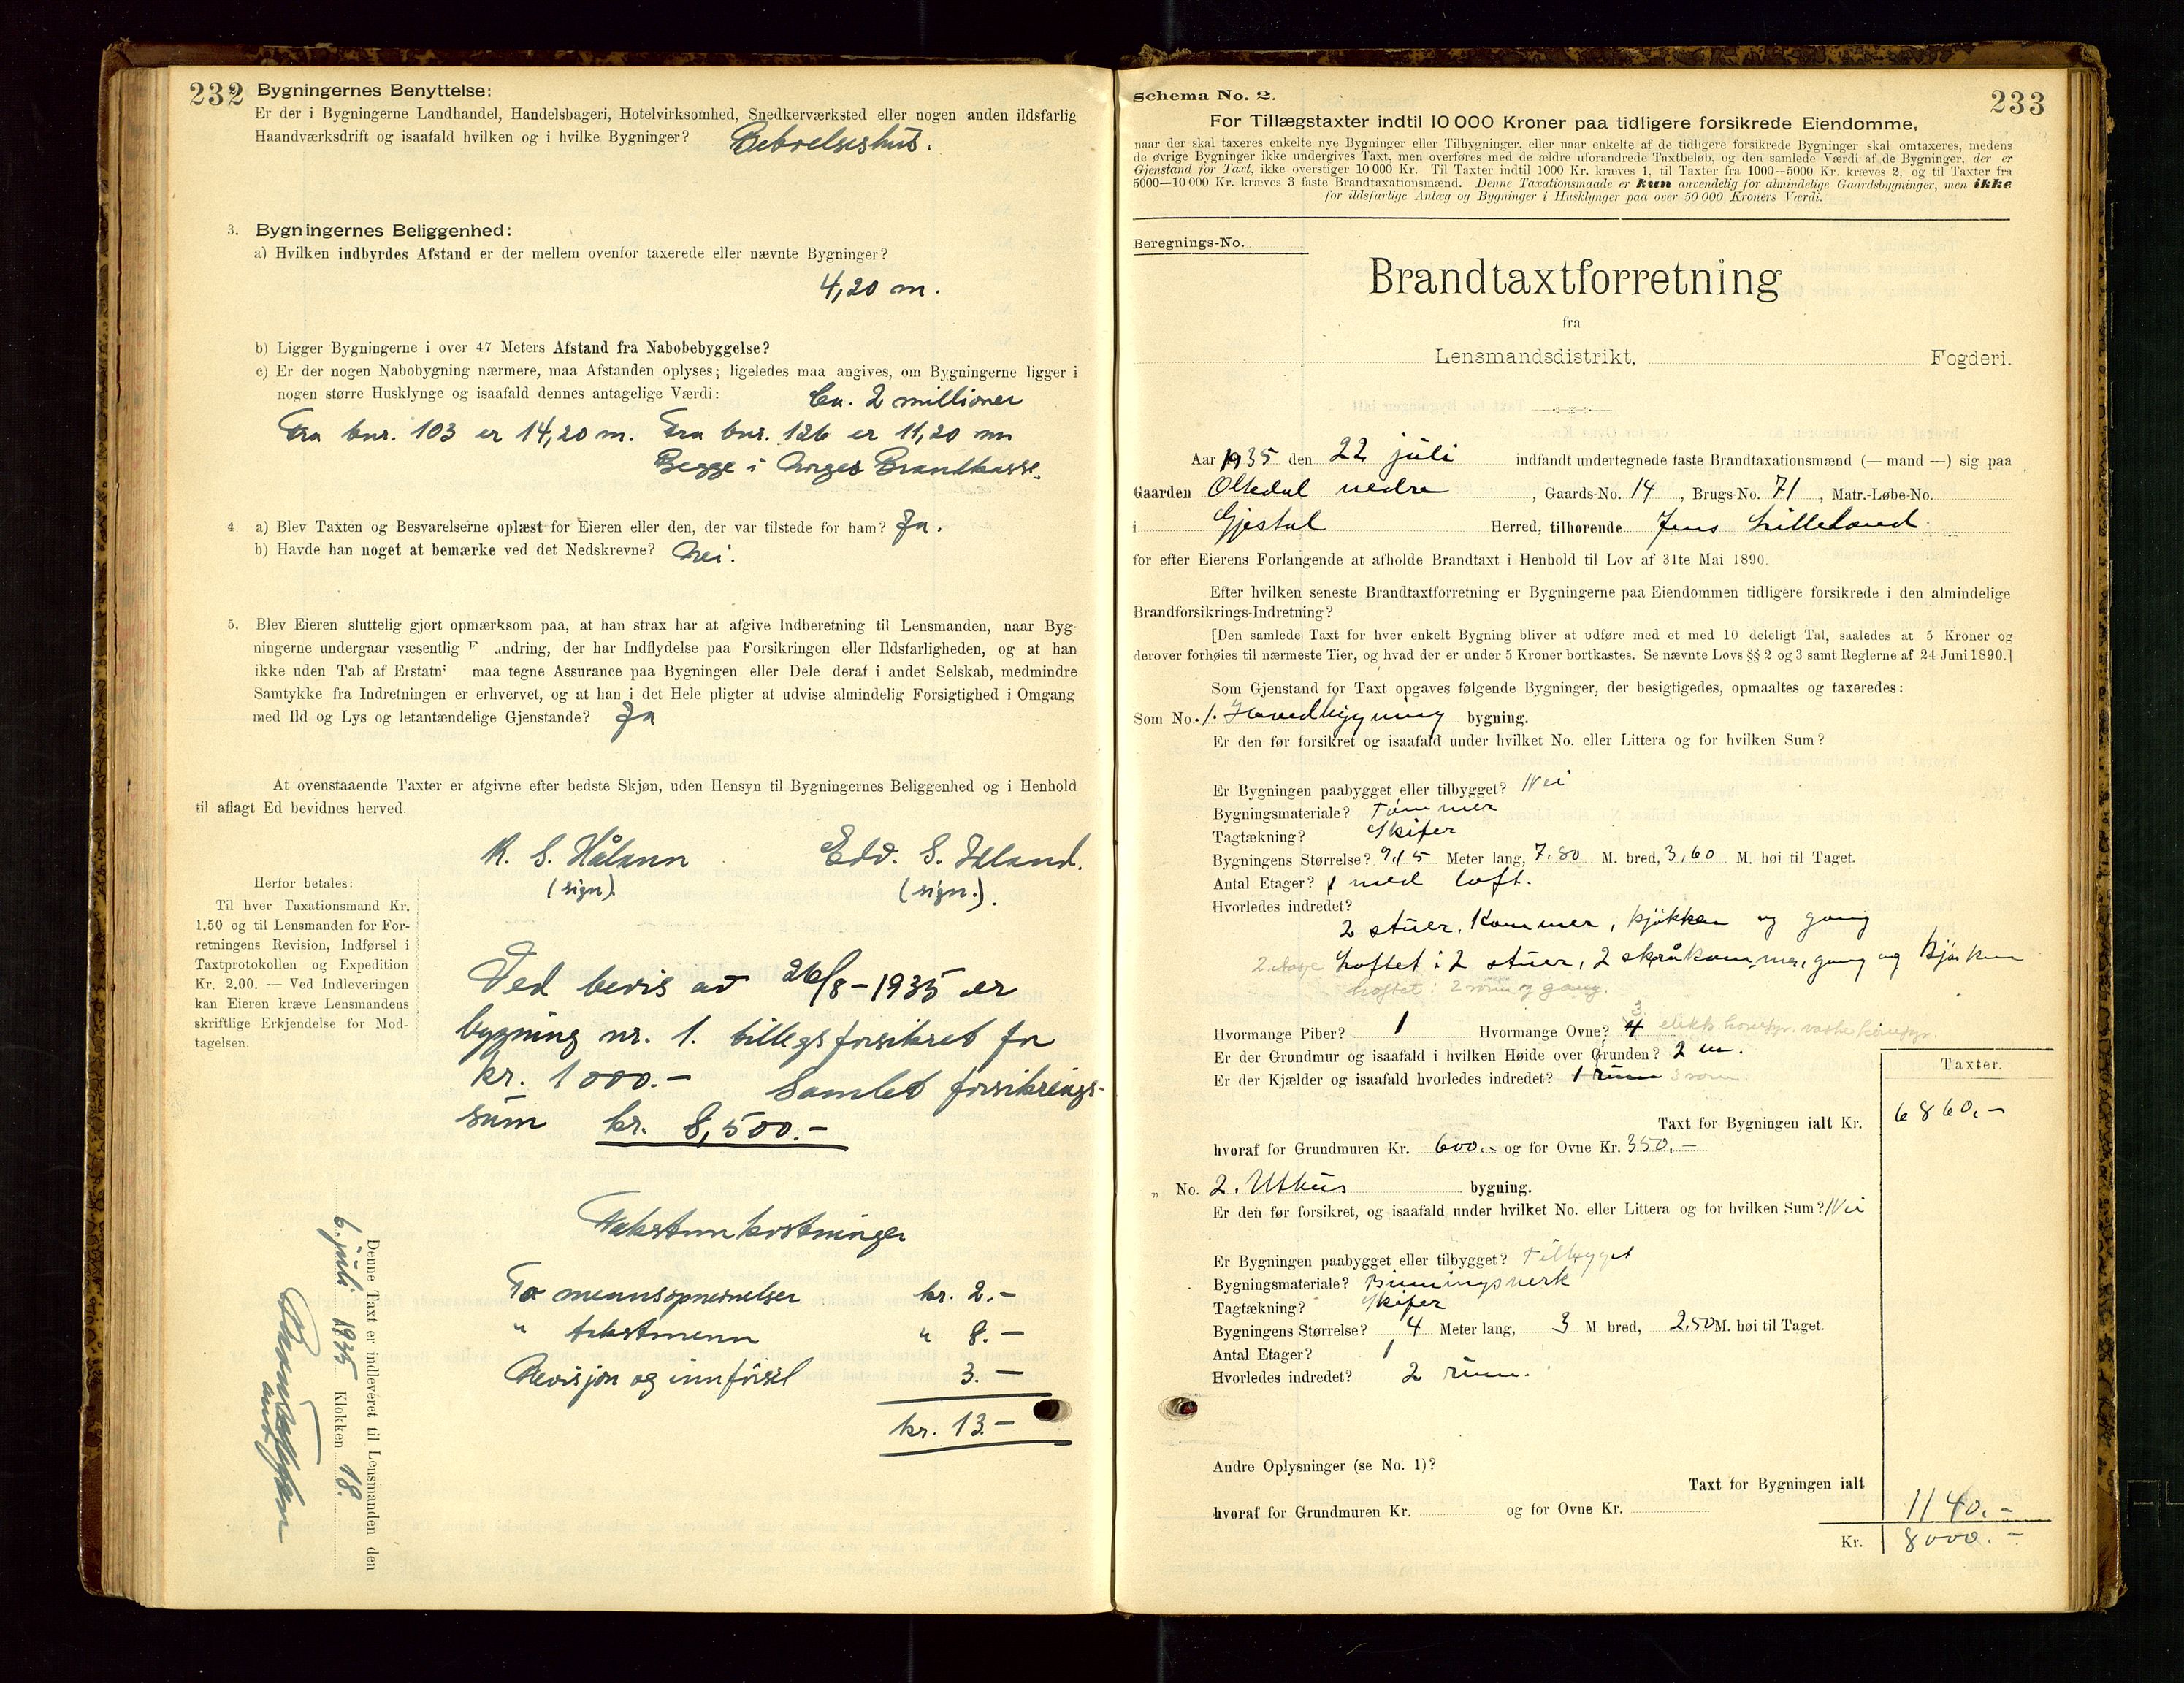 232
Bygningernes Benyttelse:
Er der i Bygningerne Landhandel, Handelsbageri, Hotelvirksomhed, Snedkerværksted eller nogen anden ildsfarlig
Haandværksdrift og isaafald hvilken og i hvilke Bygninger? Beboelseshus.
3. Bygningernes Beliggenhed:
a) Hvilken indbyrdes Afstand er der mellem ovenfor taxerede eller nævnte Bygninger?
4,20 m.
b) Ligger Bygningerne i over 47 Meters Afstand fra Nabobebyggelse?
c) Er der nogen Nabobygning nærmere, maa Afstanden oplyses; ligeledes maa angives, om Bygningerne ligger i
nogen større Husklynge og isaafald dennes antagelige Værdi: Ca. 2 millioner
Fra bnr. 103 er 14,20 m. Fra bnr. 126 er 11,20 m
Begge i Norges Brandkasse.
4. a) Blev Taxten og Besvarelserne oplæst for Eieren eller den, der var tilstede for ham? Ja.
b) Havde han noget at bemærke ved det Nedskrevne? Nei.
5. Blev Eieren sluttelig gjort opmærksom paa, at han strax har at afgive Indberetning til Lensmanden, naar Byg-
ningerne undergaar væsentlig F andring, der har Indflydelse paa Forsikringen eller Ildsfarligheden, og at han
ikke uden Tab af Erstatni maa tegne Assurance paa Bygningen eller Dele deraf i andet Selskab, medmindre
Samtykke fra Indretningen er erhvervet, og at han i det Hele pligter at udvise almindelig Forsigtighed i Omgang
med Ild og Lys og letantændelige Gjenstande? Ja
At ovenstaaende Taxter er afgivne efter bedste Skjøn, uden Hensyn til Bygningernes Beliggenhed og i Henhold
til aflagt Ed bevidnes herved.
K. S. Håland Edv. S. Island.
(sign). (sign.).
Herfor betales:
Til hver Taxationsmand Kr.
1.50 og til Lensmanden for For-
retningens Revision, Indførsel i
Taxtprotokollen og Expedition
Kr. 2.00. — Ved Indleveringen
kan Eieren kræve Lensmandens
skriftlige Erkjendelse for Mod-
tagelsen.
Ved bevis av 26/8-1935 er
bygning nr. 1. tillegsforsikret for
kr. 1000.- Samlet forsikrings-
sum kr. 8,500.-
Takstomkostninger
For mennsopnevnelser kr. 2.-
" takstmenn " 8.-
Revisjon og innførsel 3.-
kr. 13.-
Denne Taxt er indleveret til Lensmanden den
6. juli 1935 Klokken 18.
233
Schema No. 2.
For Tillægstaxter indtil 10 000 Kroner paa tidligere forsikrede Eiendomme,
naar der skal taxeres enkelte nye Bygninger eller Tilbygninger, eller naar enkelte af de tidligere forsikrede Bygninger skal omtaxeres, medens
de øvrige Bygninger ikke undergives Taxt, men overføres med de ældre uforandrede Taxtbeløb, og den samlede Værdi af de Bygninger, der er
Gjenstand for Taxt, ikke overstiger 10 000 Kr. Til Taxter indtil 1000 Kr. kræves 1, til Taxter fra 1000—5000 Kr. kræves 2, og til Taxter fra
5000—10 000 Kr. kræves 3 faste Brandtaxationsmænd. Denne Taxationsmaade er kun anvendelig for almindelige Gaardsbygninger, men ikke
for ildsfarlige Anlæg og Bygninger i Husklynger paa over 50 000 Kroners Værdi.
Beregnings-No.
Brandtaxtforretning
fra
Lensmandsdistrikt, Fogderi.
Aar 1935 den 22 juli indfandt undertegnede faste Brandtaxationsmænd (— mand —) sig paa
Gaarden Oltedal nedre, Gaards-No. 14, Brugs-No. 71, Matr.-Løbe-No.
i Gjestal Herred, tilhørende Jens Lilleland.
for efter Eierens Forlangende at afholde Brandtaxt i Henhold til Lov af 31te Mai 1890.
Efter hvilken seneste Brandtaxtforretning er Bygningerne paa Eiendommen tidligere forsikrede i den almindelige
Brandforsikrings-Indretning?
[Den samlede Taxt for hver enkelt Bygning bliver at udføre med et med 10 deleligt Tal, saaledes at 5 Kroner og
derover forhøies til nærmeste Tier, og hvad der er under 5 Kroner bortkastes. Se nævnte Lovs §§ 2 og 3 samt Reglerne af 24 Juni 1890.]
Som Gjenstand for Taxt opgaves følgende Bygninger, der besigtigedes, opmaaltes og taxeredes:
Som No. 1. Hovedbygning bygning.
Er den før forsikret og isaafald under hvilket No. eller Littera og for hvilken Sum?
Er Bygningen paabygget eller tilbygget? Nei
Bygningsmateriale? Tømmer
Tagtækning? Skifer
Bygningens Størrelse? 9,15 Meter lang, 7.80 M. bred, 3,60 M. høi til Taget.
Antal Etager? 1 med loft.
Hvorledes indredet?
2 stuer, Kammer, kjøkken og gang
2 etasje Loftet i 2 stuer, 2 skråkammer, gang og kjøkken
Loftet: 2 rom og gang.
Hvormange Piber? 1 Hvormange Ovne? 4 3 elektr. komfyr.
Er der Grundmur og isaafald i hvilken Høide over Grunden? 2 m.
Er der Kjælder og isaafald hvorledes indredet? 1 rum 3 rom.
Taxter.
Taxt for Bygningen ialt Kr. 6860.-
hvoraf for Grundmuren Kr. 600.- og for Ovne Kr. 350.-
" No. 2. Uthus bygning.
Er den før forsikret, og isaafald under hvilket No. eller Littera og for hvilken Sum? Nei
Er Bygningen paabygget eller tilbygget? Tilbygget
Bygningsmateriale? Binningsverk
Tagtækning? Skifer
Bygningens Størrelse? 4 Meter lang, 3 M. bred, 2.50 M. høi til Taget.
Antal Etager? 1
Hvorledes indredet? 2 rum.
Andre Oplysninger (se No. 1)?
Taxt for Bygningen ialt
hvoraf for Grundmuren Kr. og for Ovne Kr. 1140.-
Kr. 8000.-